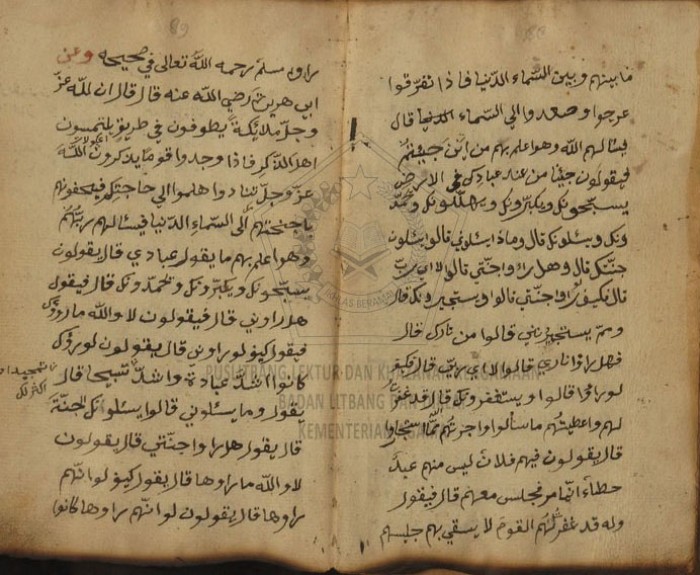 ما بينهم وبين السّماء الدّنيا فاذا تفرّقوا
عرجوا وصعدوا الي السّماء الدنيا قال
فيسالهم الله وهو اعلم بهم من اين جيئتم
فيقولون جئنا من عند عبادك في الارض
يسبّحونك ويكبّرونك ويهلّلونك ويحمّد
ونك ويسئلونك قال وماذا يسئلوني قالوا يسئلون
جنّتك قال وهل راوا جنّتي قالوا لا اي ربّ
قال فكيف لو راوا جنّتي قالوا ويستجيرونك قال
وممّ يستجيرونني قالوا من نارك قال
فهل راوا ناري قالوا لا اي ربّ قال فكيف
لو راوا قالوا ويستغفرونك قال قد غفرت
لهم واعطيتهم ما سألوا واجرتهم ممّا استجاروا
قال يقولون فيهم فلان ليس منهم عبد
خطّاء انّما مر فجلس معهم قال فيقول
وله قد غفرت هم القوم لا يسقي بهم جليسهم
89
رواه مسلم رحمه الله تعالى في صحيحه وعن
ابي هريرة رضي الله عنه قال قال ان لله عزّ
وجلّ ملائكة يطوفون في طريق يلتمسون
اهل الذكر فاذا وجدوا قوما يذكرون اللّه
عزّ وجلّ تنادوا هلموا الي حاجتكم فيحفونهم
باجنحتهم الى السّماء الدّنيا فيسالهم ربّهم
وهو اعلم بهم ما يقول عبادي قال يقولون
يسبّحونك ويكبّرونك ويحمّدونك قال فيقول
هل راوني قال فيقولون لا والله ما رووك
فيقول كيف لو راوني قال يقولون لو راوك
كانوا اشدّ عبادة واشدّ تسبيحا قال
تمجيدا و
اكثر لك
يقول وما يسئلوني قالوا يسئلونك الجنّة
قال يقول هل راوا جنّتي قال يقولون
لا والله ما راوها قال يقول كيف لو انّهم
راوها قال يقولون لو انّهم راوها كانوا
IKHLAS BERAMAL
PUSLITBANG LEKTUR DAN KHAZANAH KEAGAMAAN
BADAN LITBANG DAN
KEMENTERIAN AGAMA